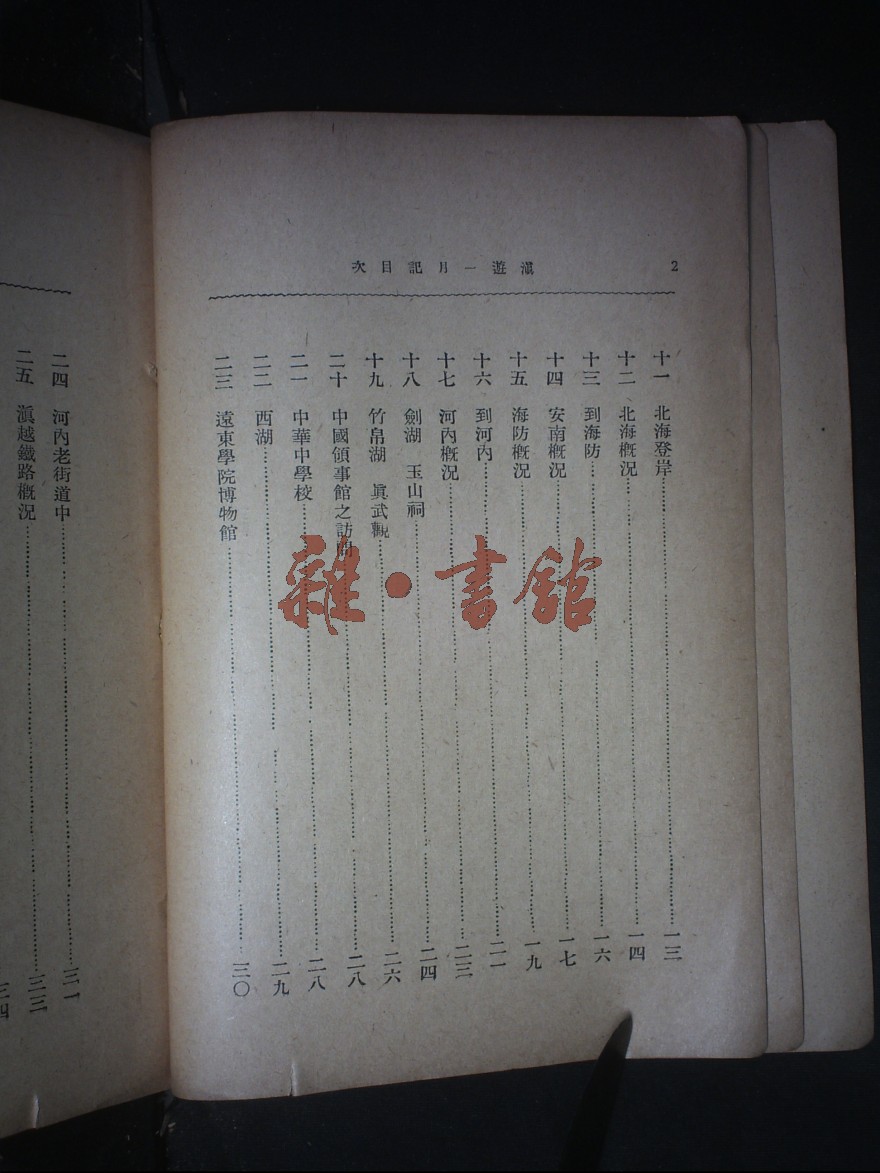 2
滇遊一月記目次
十一 北海登岸 一三
十二 北海概況 一四
十三 到海防 一六
十四 安南概況 一七
十五 海防概況 一九
十六 到河內 二一
十七 河內概況 二三
十八 劍湖 玉山祠 二四
十九 竹帛湖 眞武觀 二六
二十 中國領事館之訪問 二八
二一 中華中學校 二八
二二 西湖 二九
二三 遠東學院博物館 三〇
二四 河內老街道中 三一
二五 滇越鐵路概況 三三
三四
雜·書館